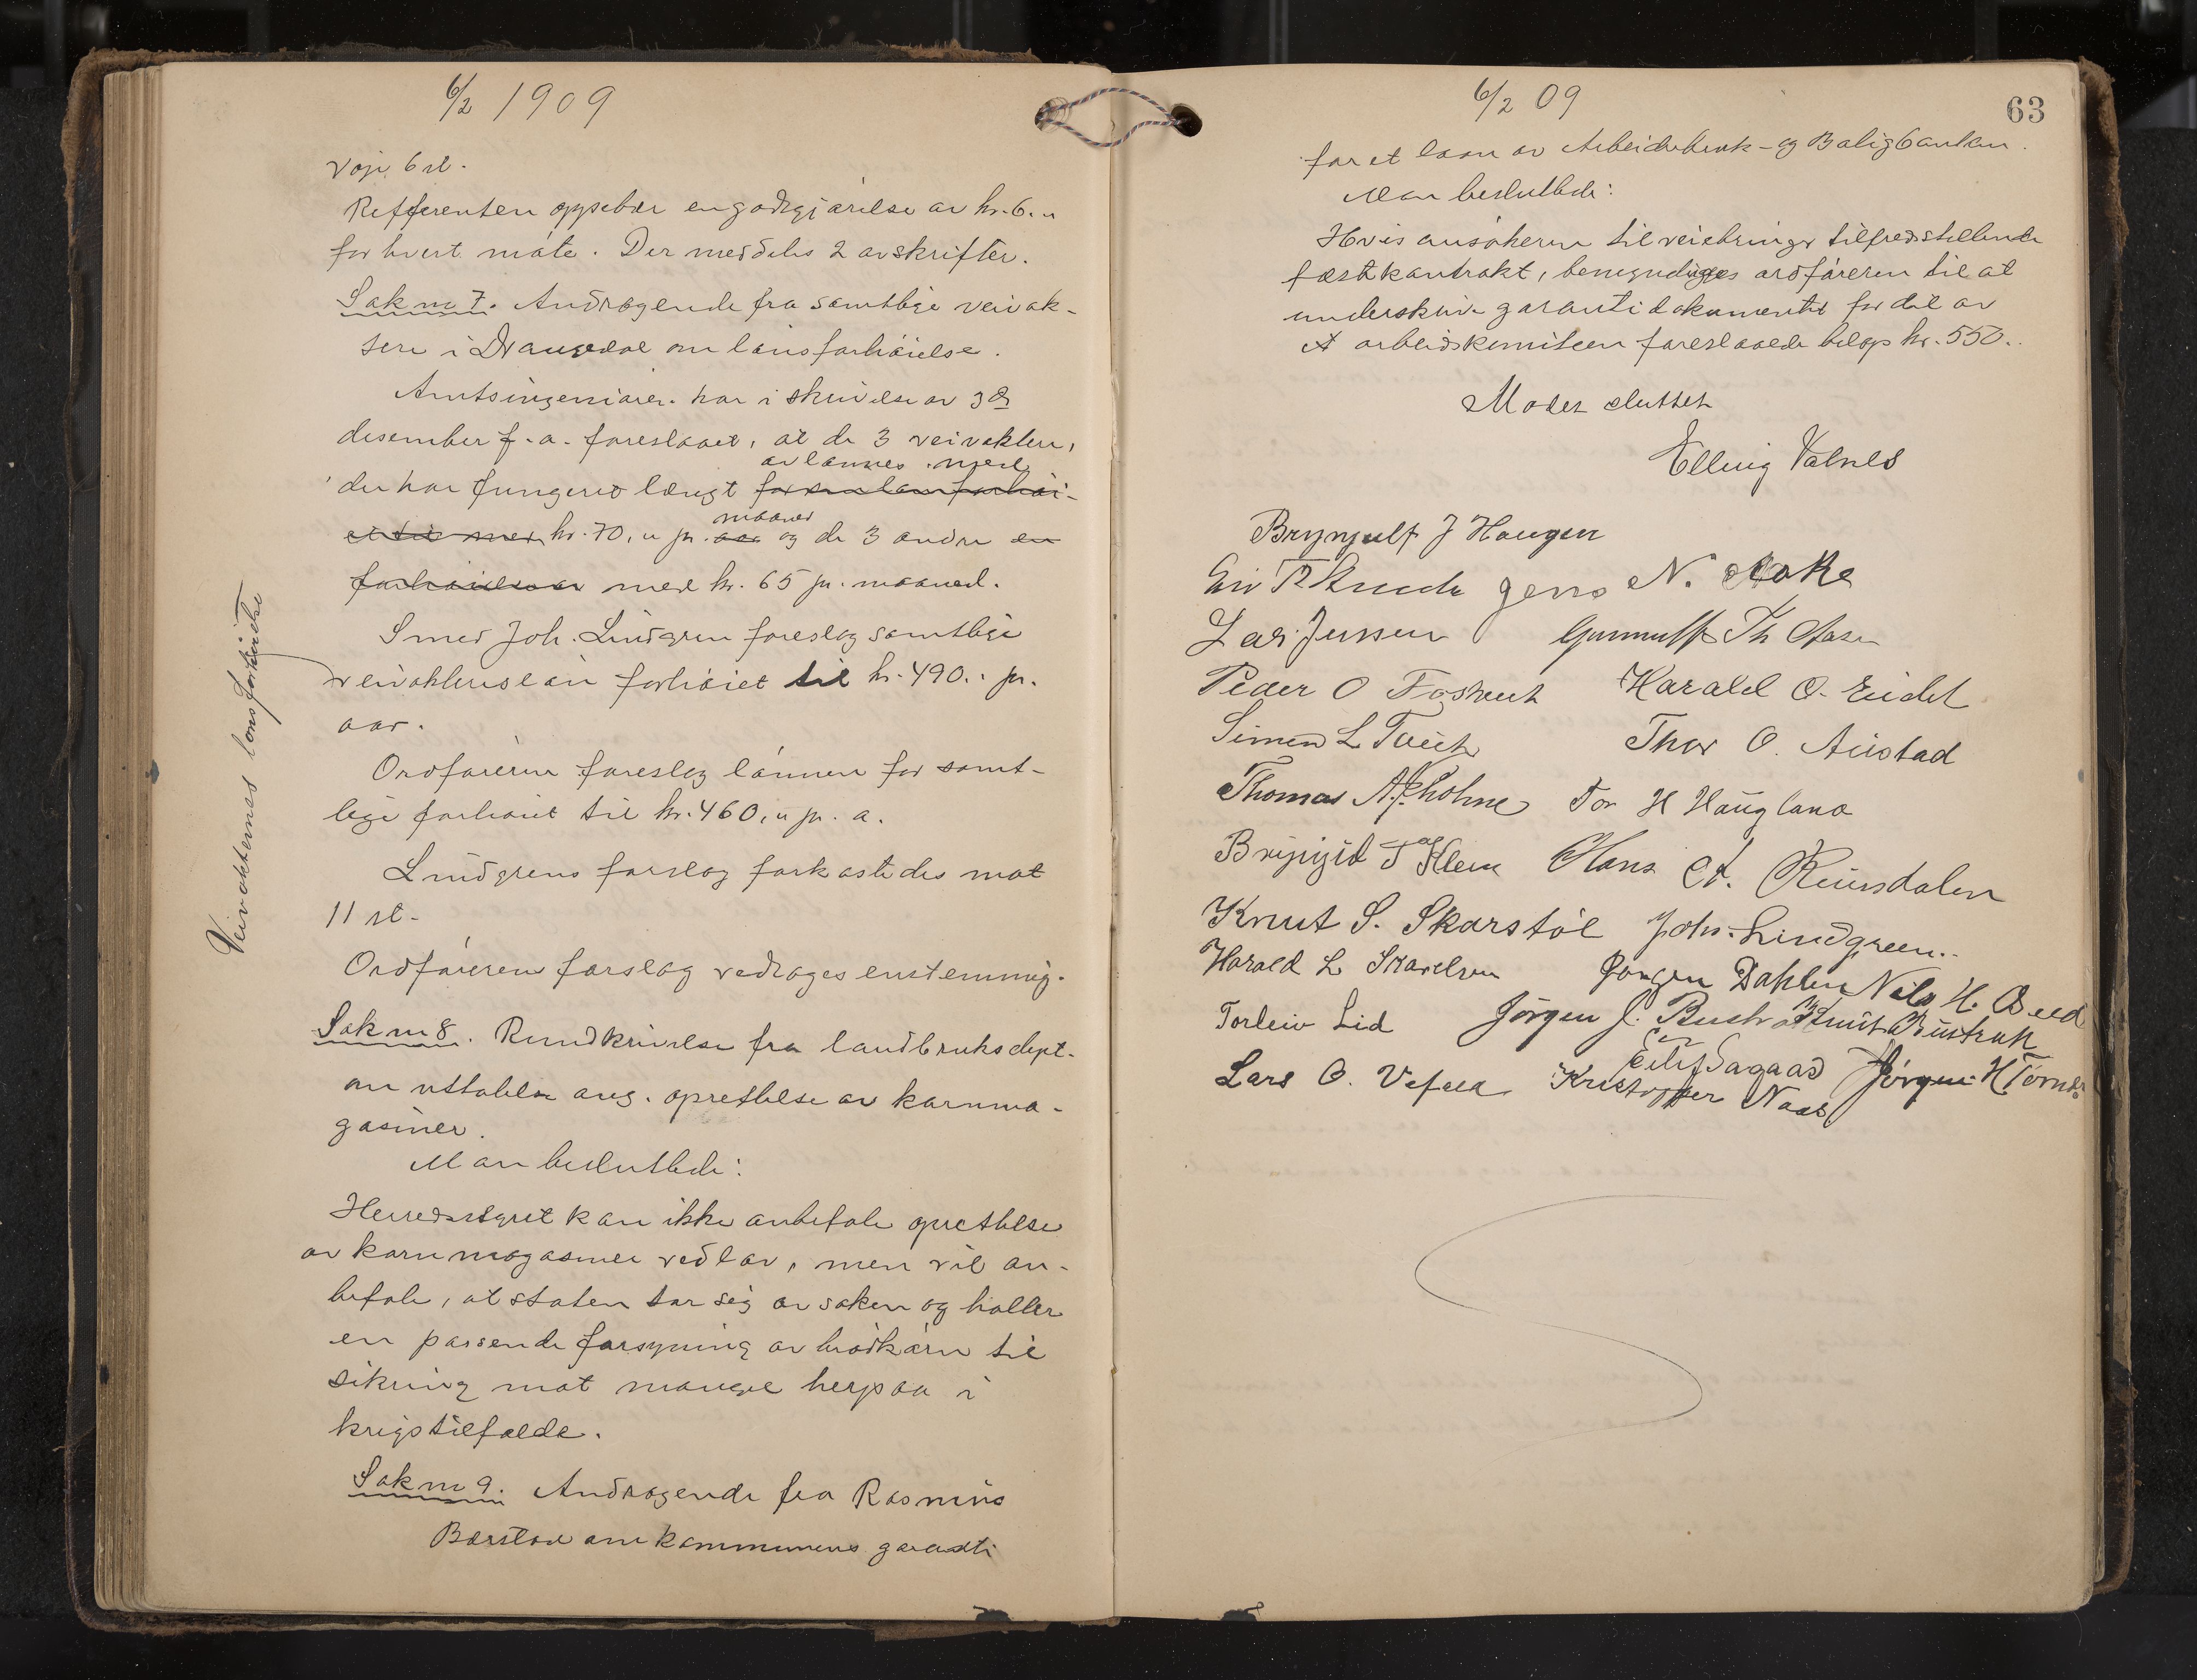 6/2 1909
Refferenten oppebær en godtgjørelse av kr. 6.„
for hvert møte. Der meddeles 2 avskrifter.
Sak nr 7. Andragende fra samtlige veivok-
tere i Drangedal om lønsforhøielse.
Amtsingeniøren har i skrivelse av 3de
desember f.a. foreslaaet, at de 3 veivoktere,
avlønnes med
der har fungeret længst
maaned
kr. 70,„ pr. aar og de 3 andre en
forhøielse av med kr. 65 pr. maaned.
Smed Joh. Lindgren foreslog samtlige
veivokteres løn forhøiet til kr. 490.„ pr.
aar.
Ordføreren foreslog lønnen for samt-
lige forhøiet til kr. 460,„ pr. a.
Lindgrens forslag forkastedes mot
11 st.
Ordførerens forslag vedtoges enstemmig.
Sak nr 8. Rundskrivelse fra landbruksdept.
om uttalelse ang. oprettelse av kornma-
gasiner.
Man besluttede:
Herredsstyret kan ikke anbefale oprettelse
av kornmagasiner ved lov, men vil an-
befale, at staten tar sig av saken og holder
en passende forsyning av brødkorn til
sikring mot mangel herpaa i
krigstilfælde.
Sak nr 9. Andragende fra Rasmus
Børstad om kommunens garanti
Veivokternes lønsforhøielse
6/2 09
63
for et laan av Arbeiderbruk- og Boligbanken.
Man besluttede:
Hvis ansøkeren tilveiebringer tilfredsstillende
fæstekontrakt, bemyndiges ordføreren til at
underskrive garantidokumentet for det av
arbeidskomiteen foreslaaede beløp kr. 550.
Møtet sluttet
Elling Valnes
Brynjulf J Haugen
Jens N. Aake
Lar. Jenssen Gunnulf Th Aasen
Peder O Fosheut Harald O. Eidet
Simen L Tveit Thor O. Austad
Thomas A. Holme Tor H Haugland
Hans A. Reinsdalen
Knut S. Skarstøl Joh. Lindgreen.
Harald L Skarelsen Jørgen Dahlen Nils H. Bued
Torleiv Lid Jørgen J. Bustrak Knut Bustrak
Eilef Sagaad Jørgen H Tørnes
Lars O. Vefald Kristoffer Naas